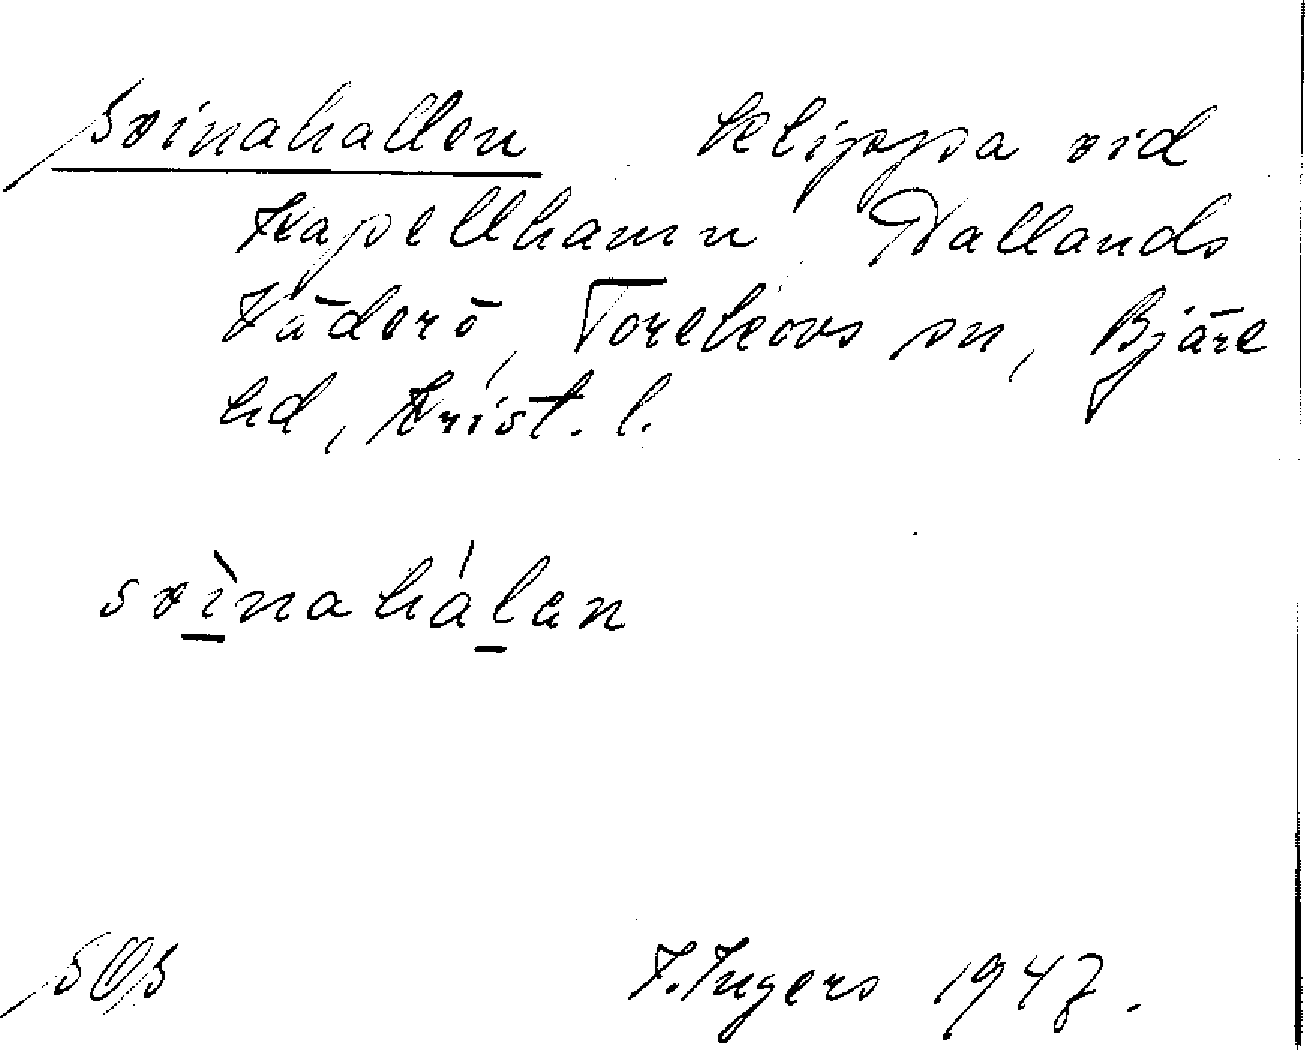 Svinahallen klippa vid
Kapellhamn Hallands
Väderö, Torekovs sn, Bjäre
hd, Krist. l.
svìnahálen
SOS I. Ingers 1947.